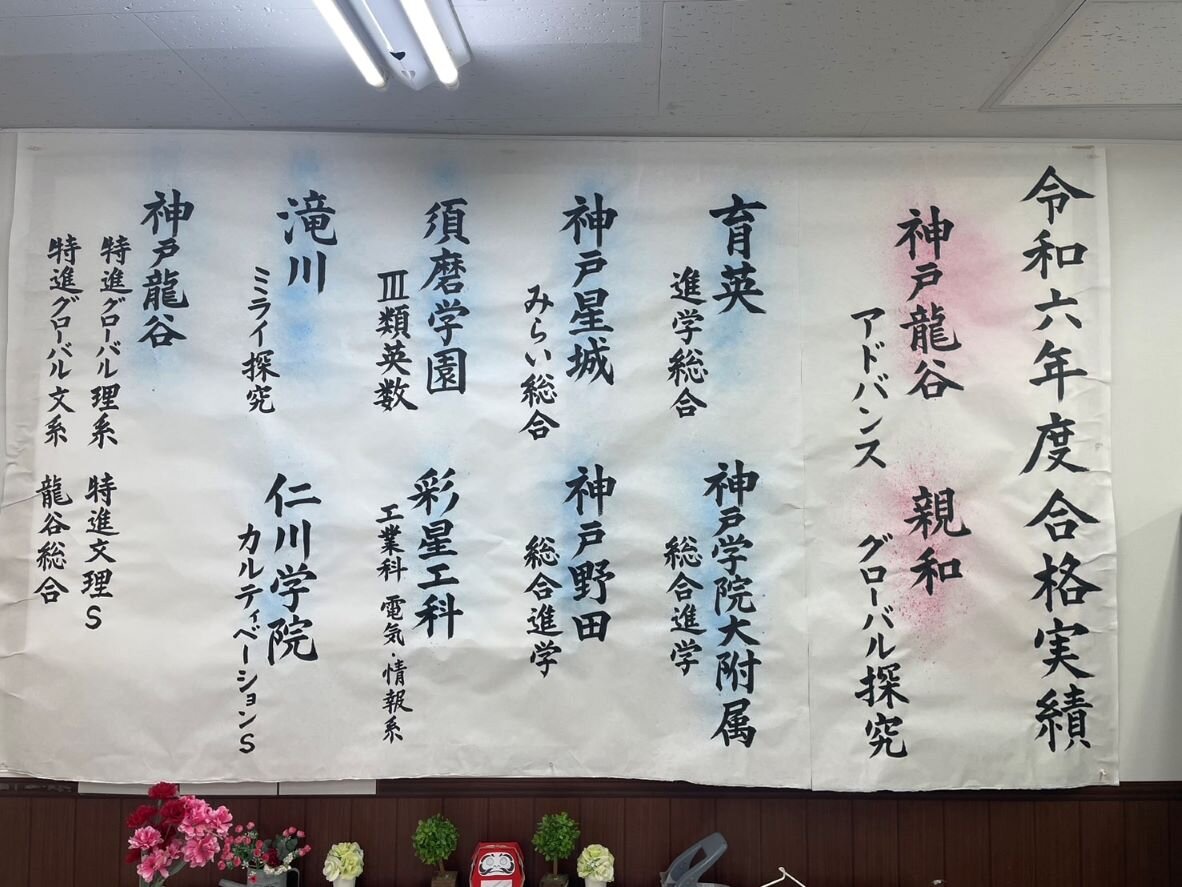 令和六年度合格実績
神戸龍谷
アドバンス
親和
グローバル探究
育英
進学総合
神戸学院大附属
総合進学
神戸星城
みらい総合
神戸野田
総合進学
須磨学園
Ⅲ類英数
彩星工科
工業科 電気・情報系
滝川
ミライ探究
仁川学院
カルティベーションS
神戸龍谷
特進グローバル理系
特進文理S
特進グローバル文系
龍谷総合